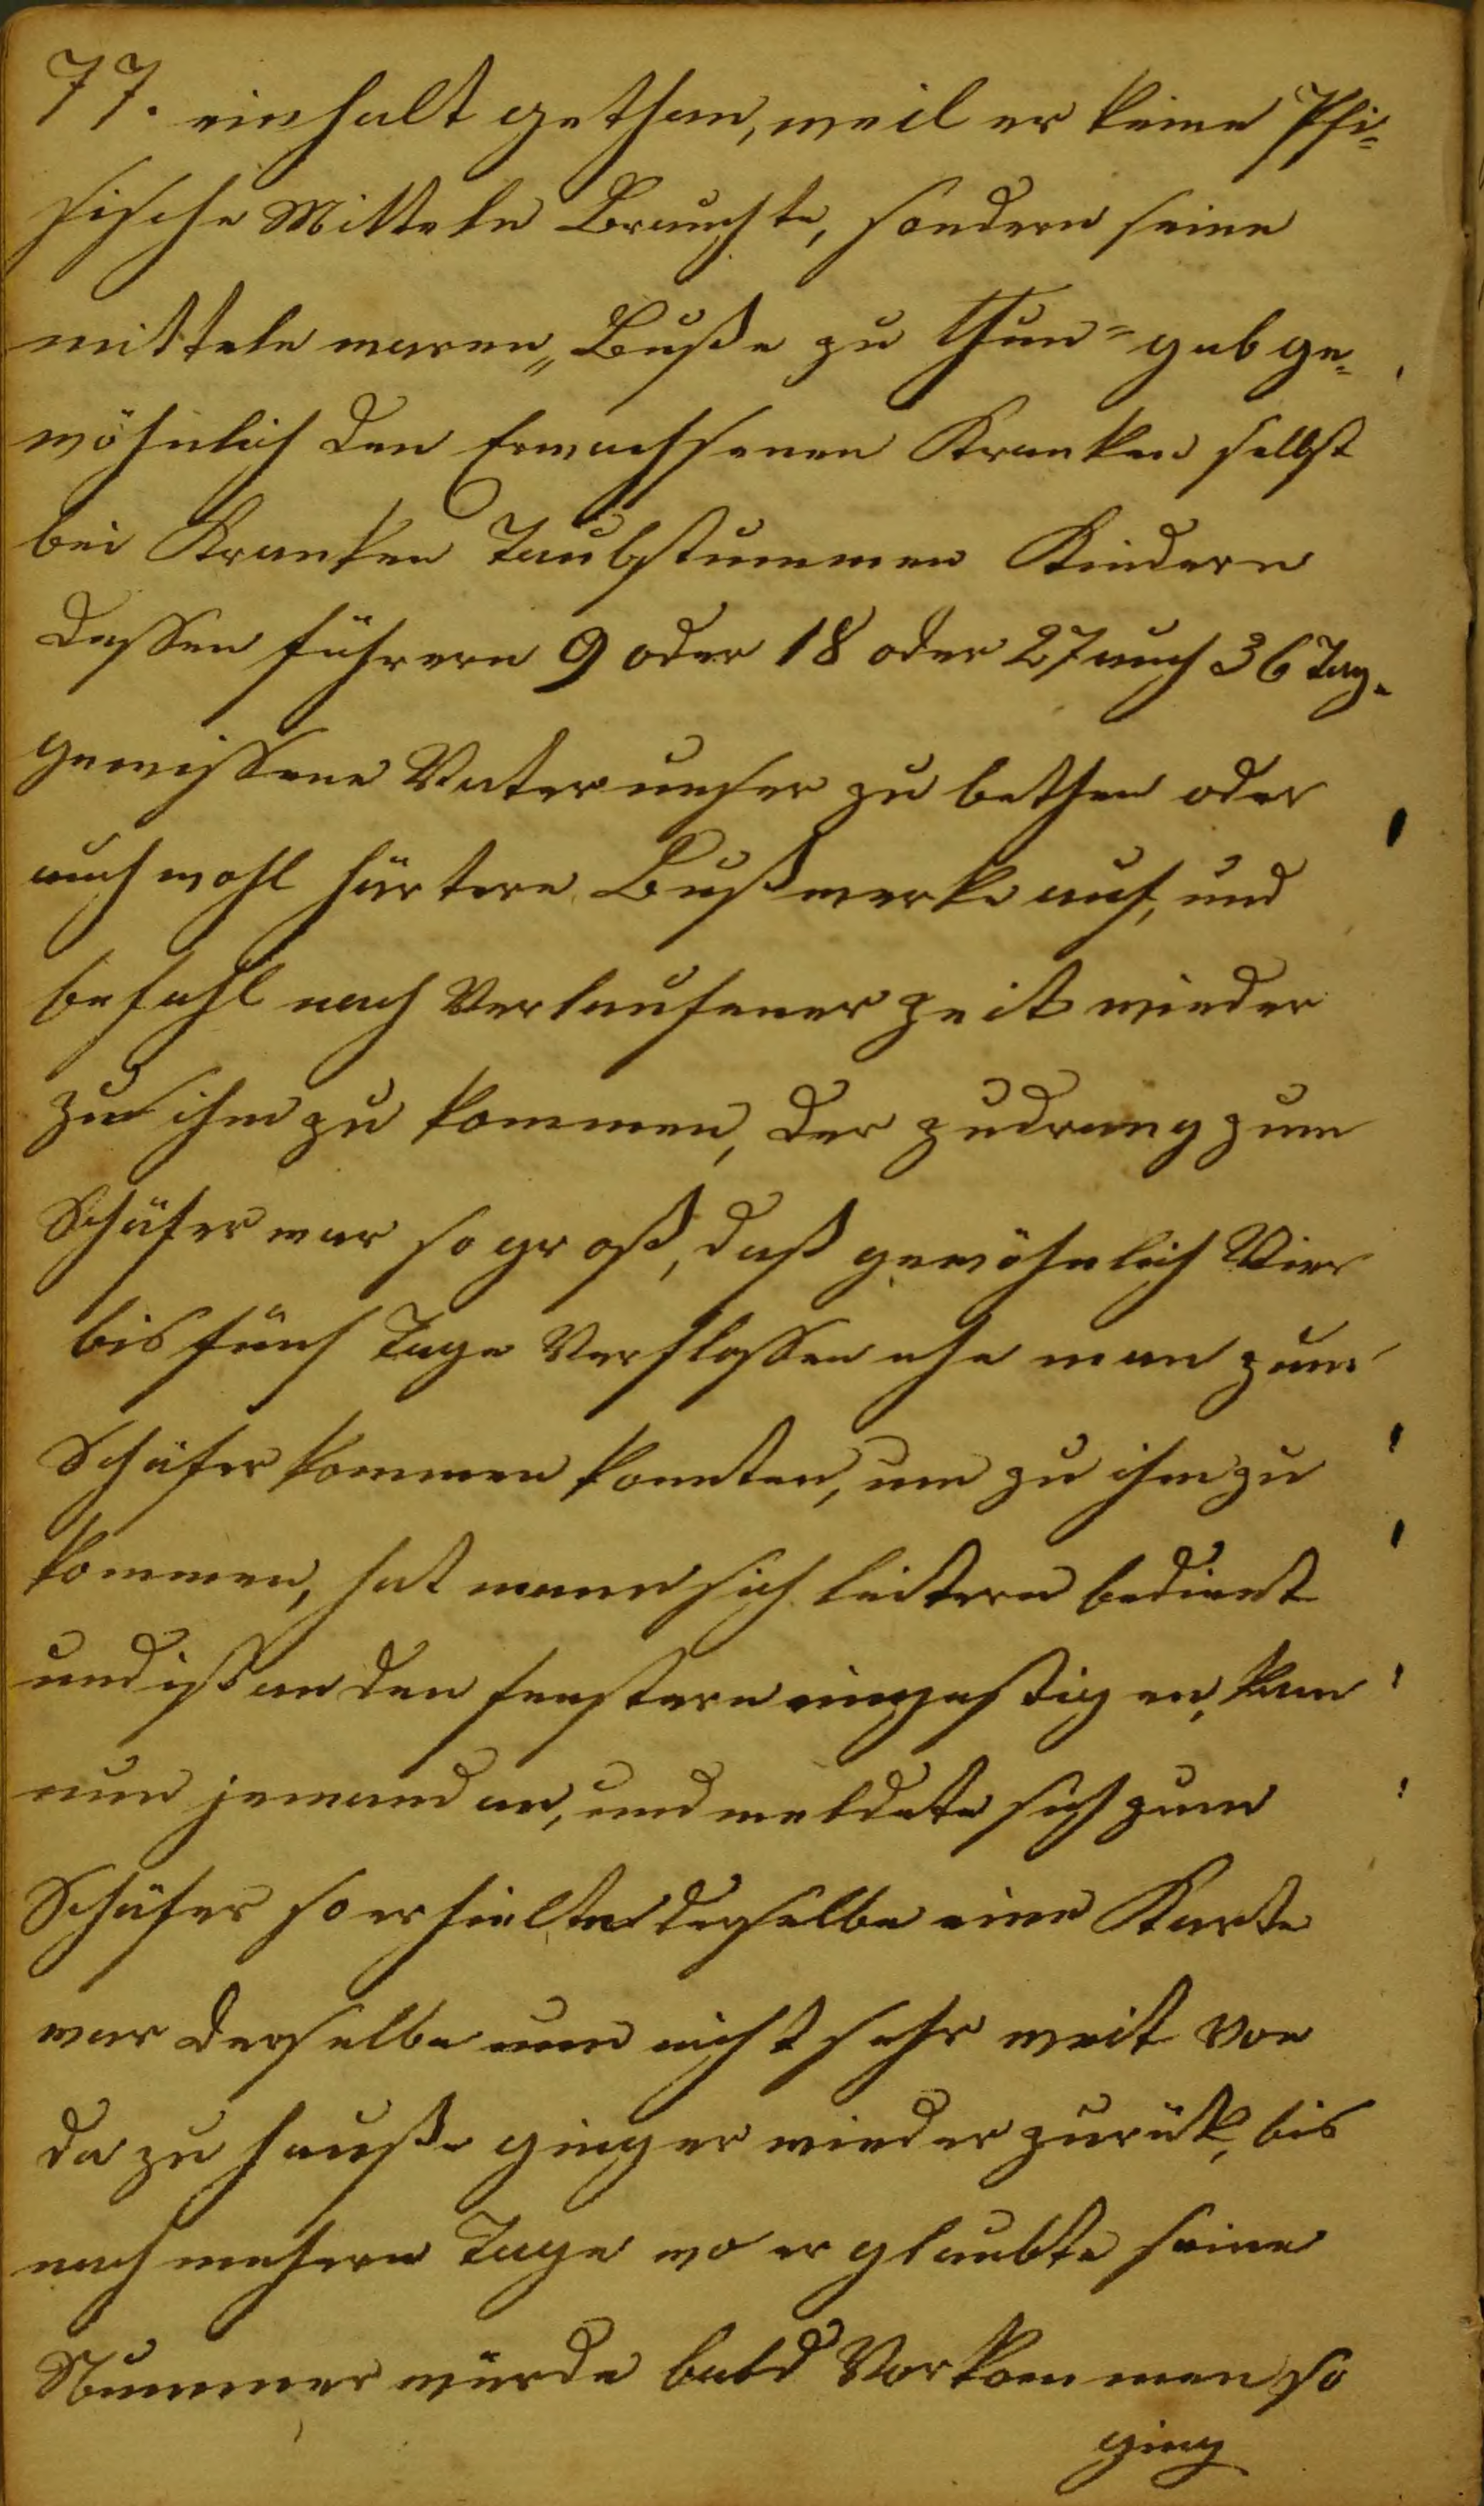 77. einhalt gethan, weil er keine Phi=
sische Mitteln Brauchte, sondern seine
mitteln waren „Buße zu thun" gab ge=
wöhnlich den Erwachsenen Kranken selbst
bei Kranken Taubstummen Kindern
dessen führern 9 oder 18 oder 27 auch 36 Tag.
gewissene Vater unser zu bethen oder
auch wohl härtere Bußwerke auf, und
befahl nach Verlaufener zeit wieder
zu ihm zu kommen, der zudrang zum
Schäfer war so groß, daß gewöhnlich Vier
bis fünf Tage Verflossen ehe man zum
Schäfer kommen konnten, um zu ihm zu
kommen, hat mann sich leitern bedient
und ist an den fenstern eingestigen, kam
nun jemand an, und meldete sich zum
Schäfer so erhielte derselbe eine Karte
war derselbe nun nicht sehr weit von
da zu hauße ging er wieder zurük, bis
nach mehern Tage wo er glaubte seine
Nummer würde bald Vorkommen so
ging